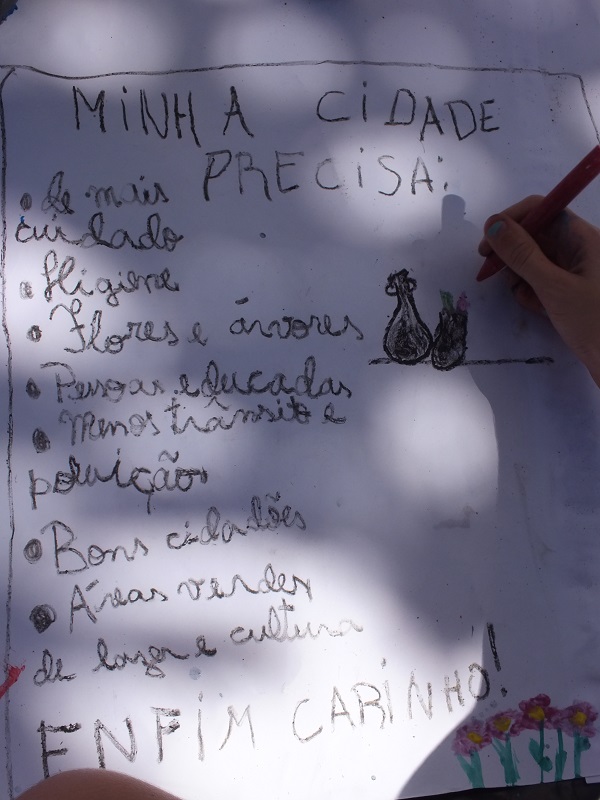 MINHA CIDADE
PRECISA:
• de mais
cuidado
• Higiene
• Flores e árvores
• Pessoas educadas
• Menos trânsito e
poluição
• Bons cidadões
• Áreas verdes
de lazer e cultura
ENFIM CARINHO!